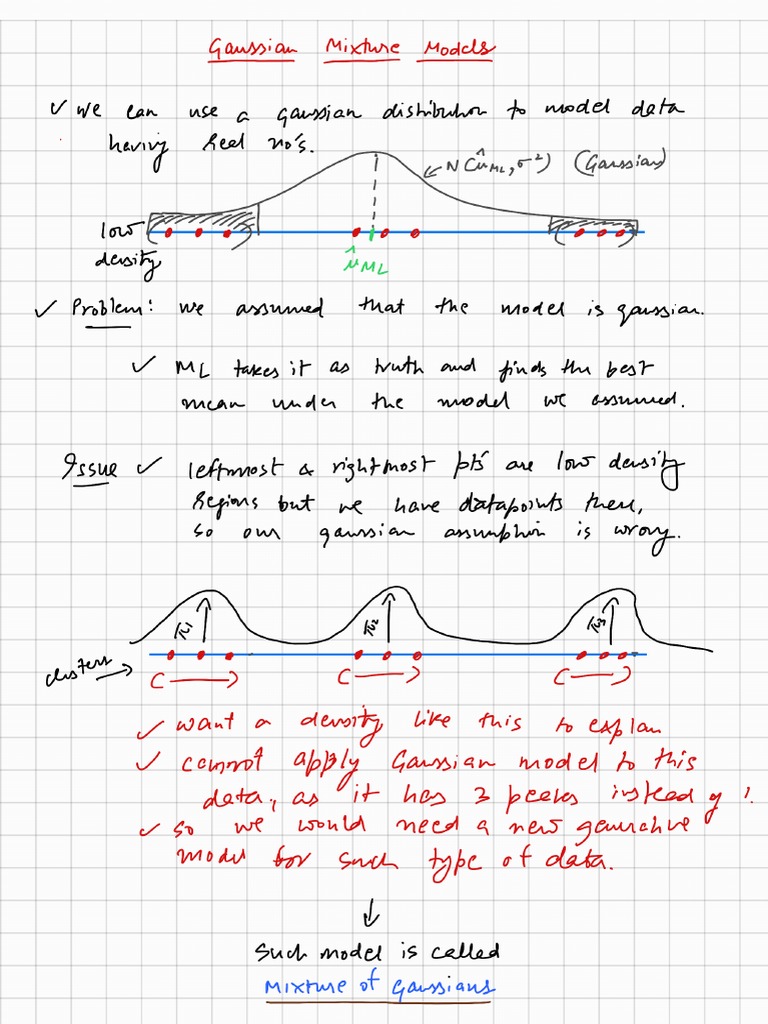 Gaussian Mixture Models
✓ we can use a gaussian distribution to model data
having real no's.
N(μ̂ML, σ²) (Gaussian)
low
density
μ̂ML
✓ Problem: we assumed that the model is gaussian.
✓ ML takes it as truth and finds the best
mean under the model we assumed.
Issue ✓ leftmost & rightmost pts are low density
regions but we have datapoints there,
so our gaussian assumption is wrong.
π1 π2 π3
clusters →
✓ want a density like this to explan
✓ cannot apply Gaussian model to this
data, as it has 3 peeks instead of 1.
✓ so we would need a new generative
model for such type of data.
↓
Such model is called
Mixture of Gaussians